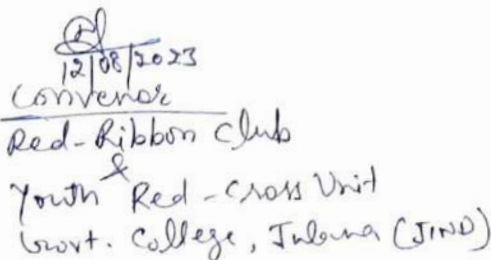 12/08/2023
Convenor
Red-Ribbon Club
&
Youth Red-Cross Unit
Govt. College, Julana (JIND)